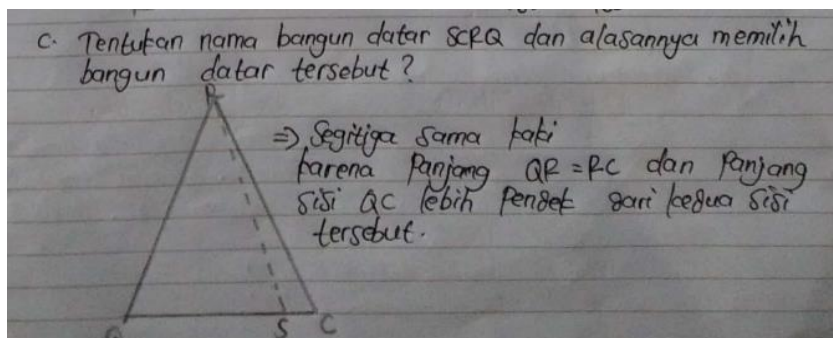 C. Tentukan nama bangun datar SCRQ dan alasannya memilih
bangun datar tersebut?
R
⇒ Segitiga sama kaki
karena Panjang QR = RC dan Panjang
sisi QC lebih Pendek dari kedua sisi
tersebut.
Q S C